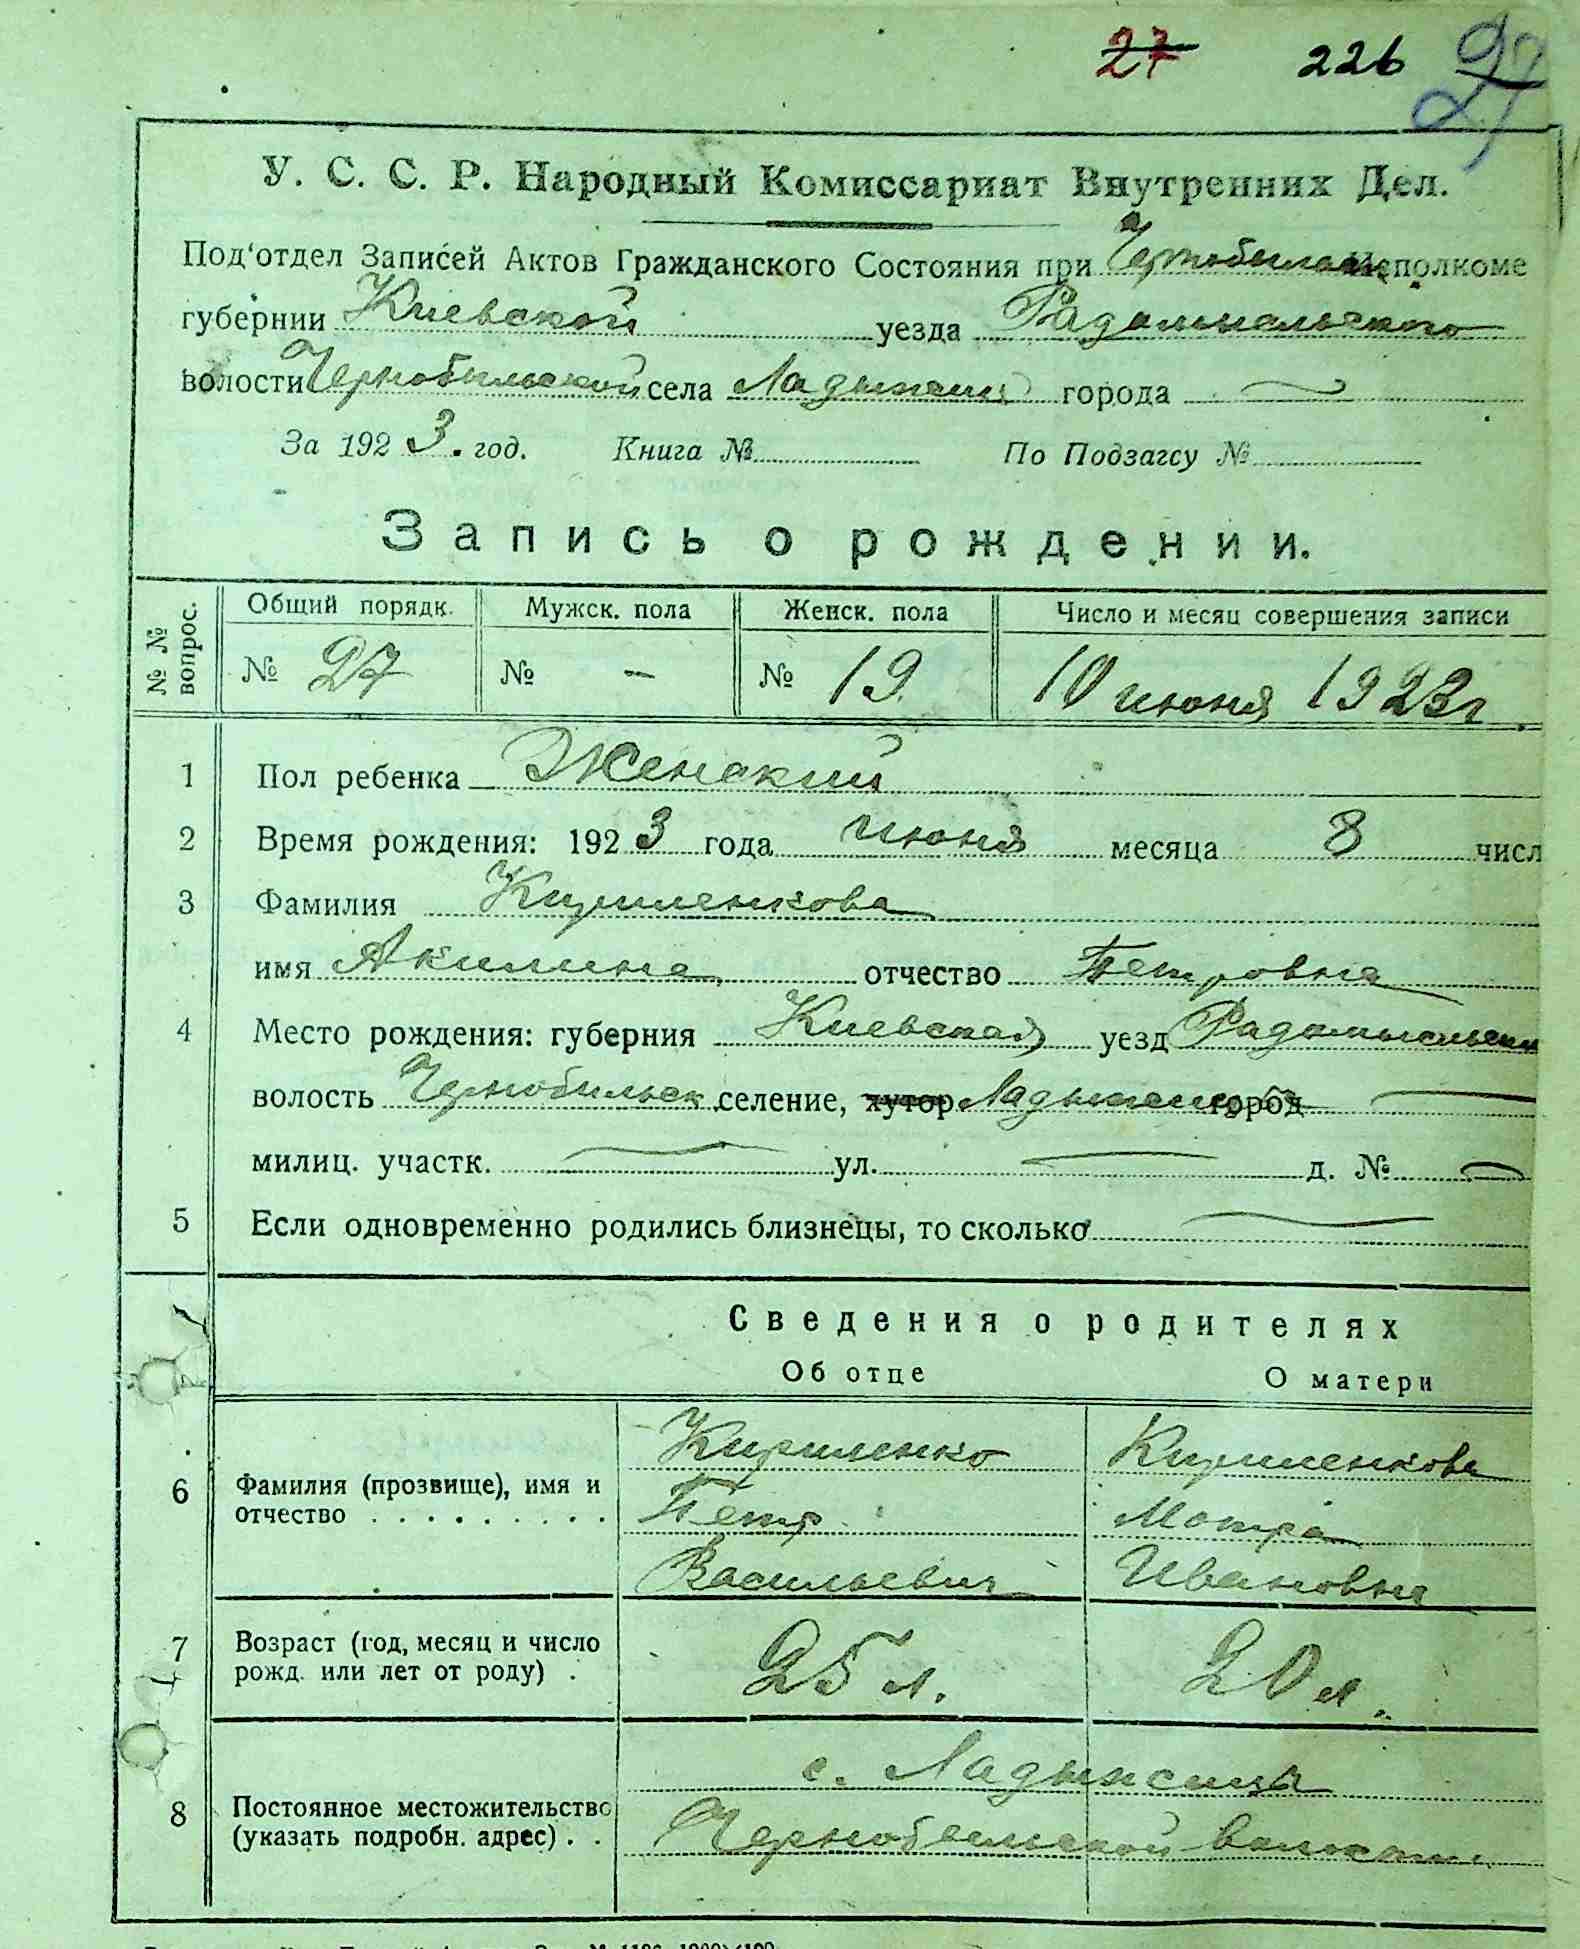 27 226 27
У. С. С. Р. Народный Комиссариат Внутренних Дел.
Под'отдел Записей Актов Гражданского Состояния при Чернобыльск Исполкоме
губернии Киевской уезда Радомысльского
волости Чернобыльской села Ладыжичи города —
За 1923. год. Книга № По Подзагсу №
Запись о рождении.
№ № вопрос. Общий порядк. Мужск. пола Женск. пола Число и месяц совершения записи
№ 27 № - № 19 10 июня 1923 г.
1 Пол ребенка Женский
2 Время рождения: 1923 года июня месяца 8 числ
3 Фамилия Кириленкова
имя Акилина отчество Петровна
4 Место рождения: губерния Киевская уезд Радомысльски
волость Чернобыльск селение, хутор Ладыжичи город —
милиц. участк. — ул. — д. № —
5 Если одновременно родились близнецы, то сколько —
Сведения о родителях
Об отце О матери
Кириленко Кириленкова
6 Фамилия (прозвище), имя и отчество . . . . . . . . . Петр Мотра
Васильевич Ивановна
7 Возраст (год, месяц и число рожд. или лет от роду) . 25 л. 20 л.
с. Ладыжичи
8 Постоянное местожительство (указать подробн. адрес) . . Чернобыльской волости